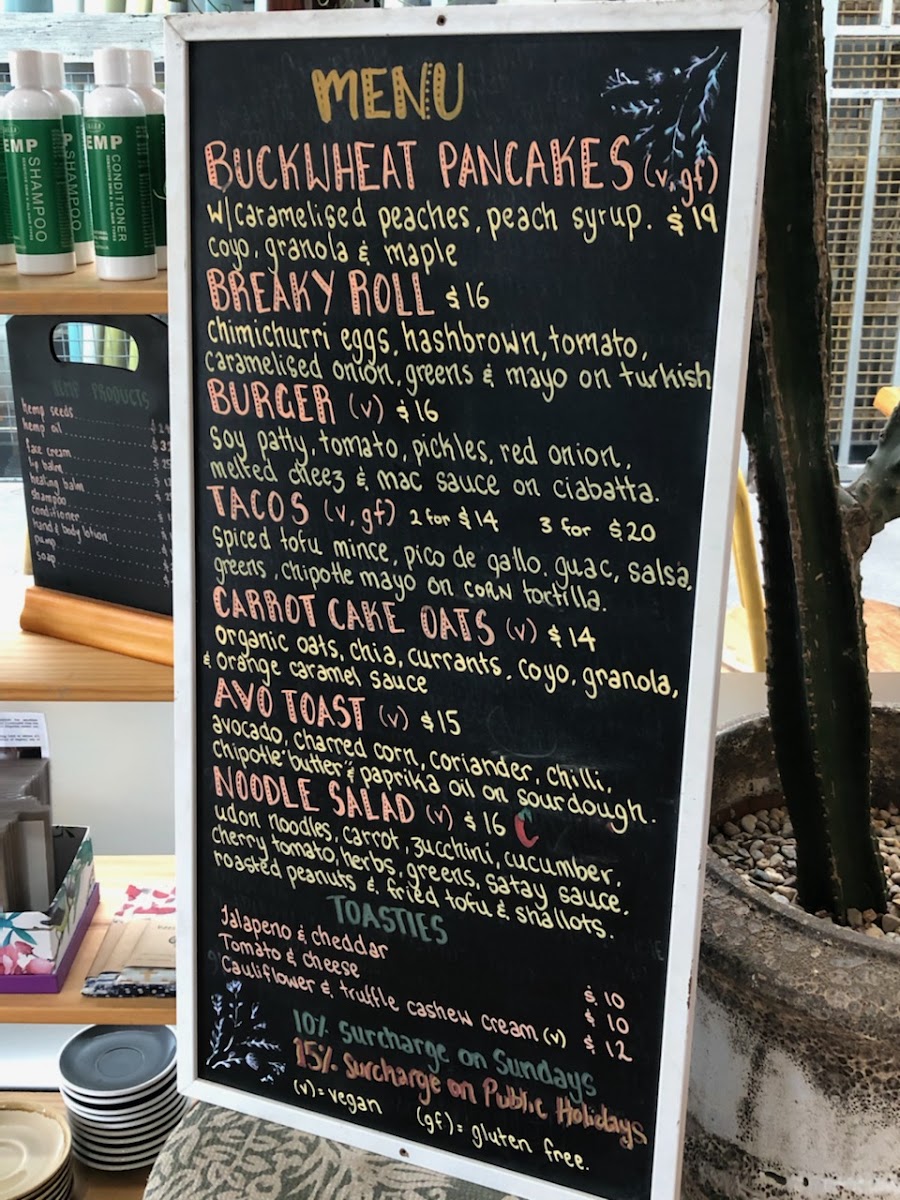 MENU
BUCKWHEAT PANCAKES (v, gf)
w/caramelised peaches, peach syrup. $19
coyo, granola & maple
BREAKY ROLL $16
chimichurri eggs, hashbrown, tomato,
caramelised onion, greens & mayo on turkish
BURGER (v) $16
soy patty, tomato, pickles, red onion,
melted cheez & mac sauce on ciabatta.
TACOS (v, gf) 2 for $14 3 for $20
spiced tofu mince, pico de gallo, guac, salsa,
greens, chipotle mayo on CORN tortilla.
CARROT CAKE OATS (v) $14
organic oats, chia, currants, coyo, granola,
& orange caramel sauce
AVO TOAST (v) $15
avocado, charred corn, coriander, chilli,
chipotle "butter" & paprika oil on sourdough.
NOODLE SALAD (v) $16
udon noodles, carrot, zucchini, cucumber,
cherry tomato, herbs, greens, satay sauce,
roasted peanuts & fried tofu & shallots.
TOASTIES
Jalapeno & cheddar $10
Tomato & cheese $10
Cauliflower & truffle cashew cream (v) $12
10% surcharge on Sundays
15% surcharge on Public Holidays
(v) = vegan (gf) = gluten free.
EMP SHAMPOO
SHAMPOO
EMP CONDITIONER
HEMP PRODUCTS
hemp seeds
hemp oil
face cream
lip balm
healing balm
shampoo
conditioner
hand & body lotion
pump
soap